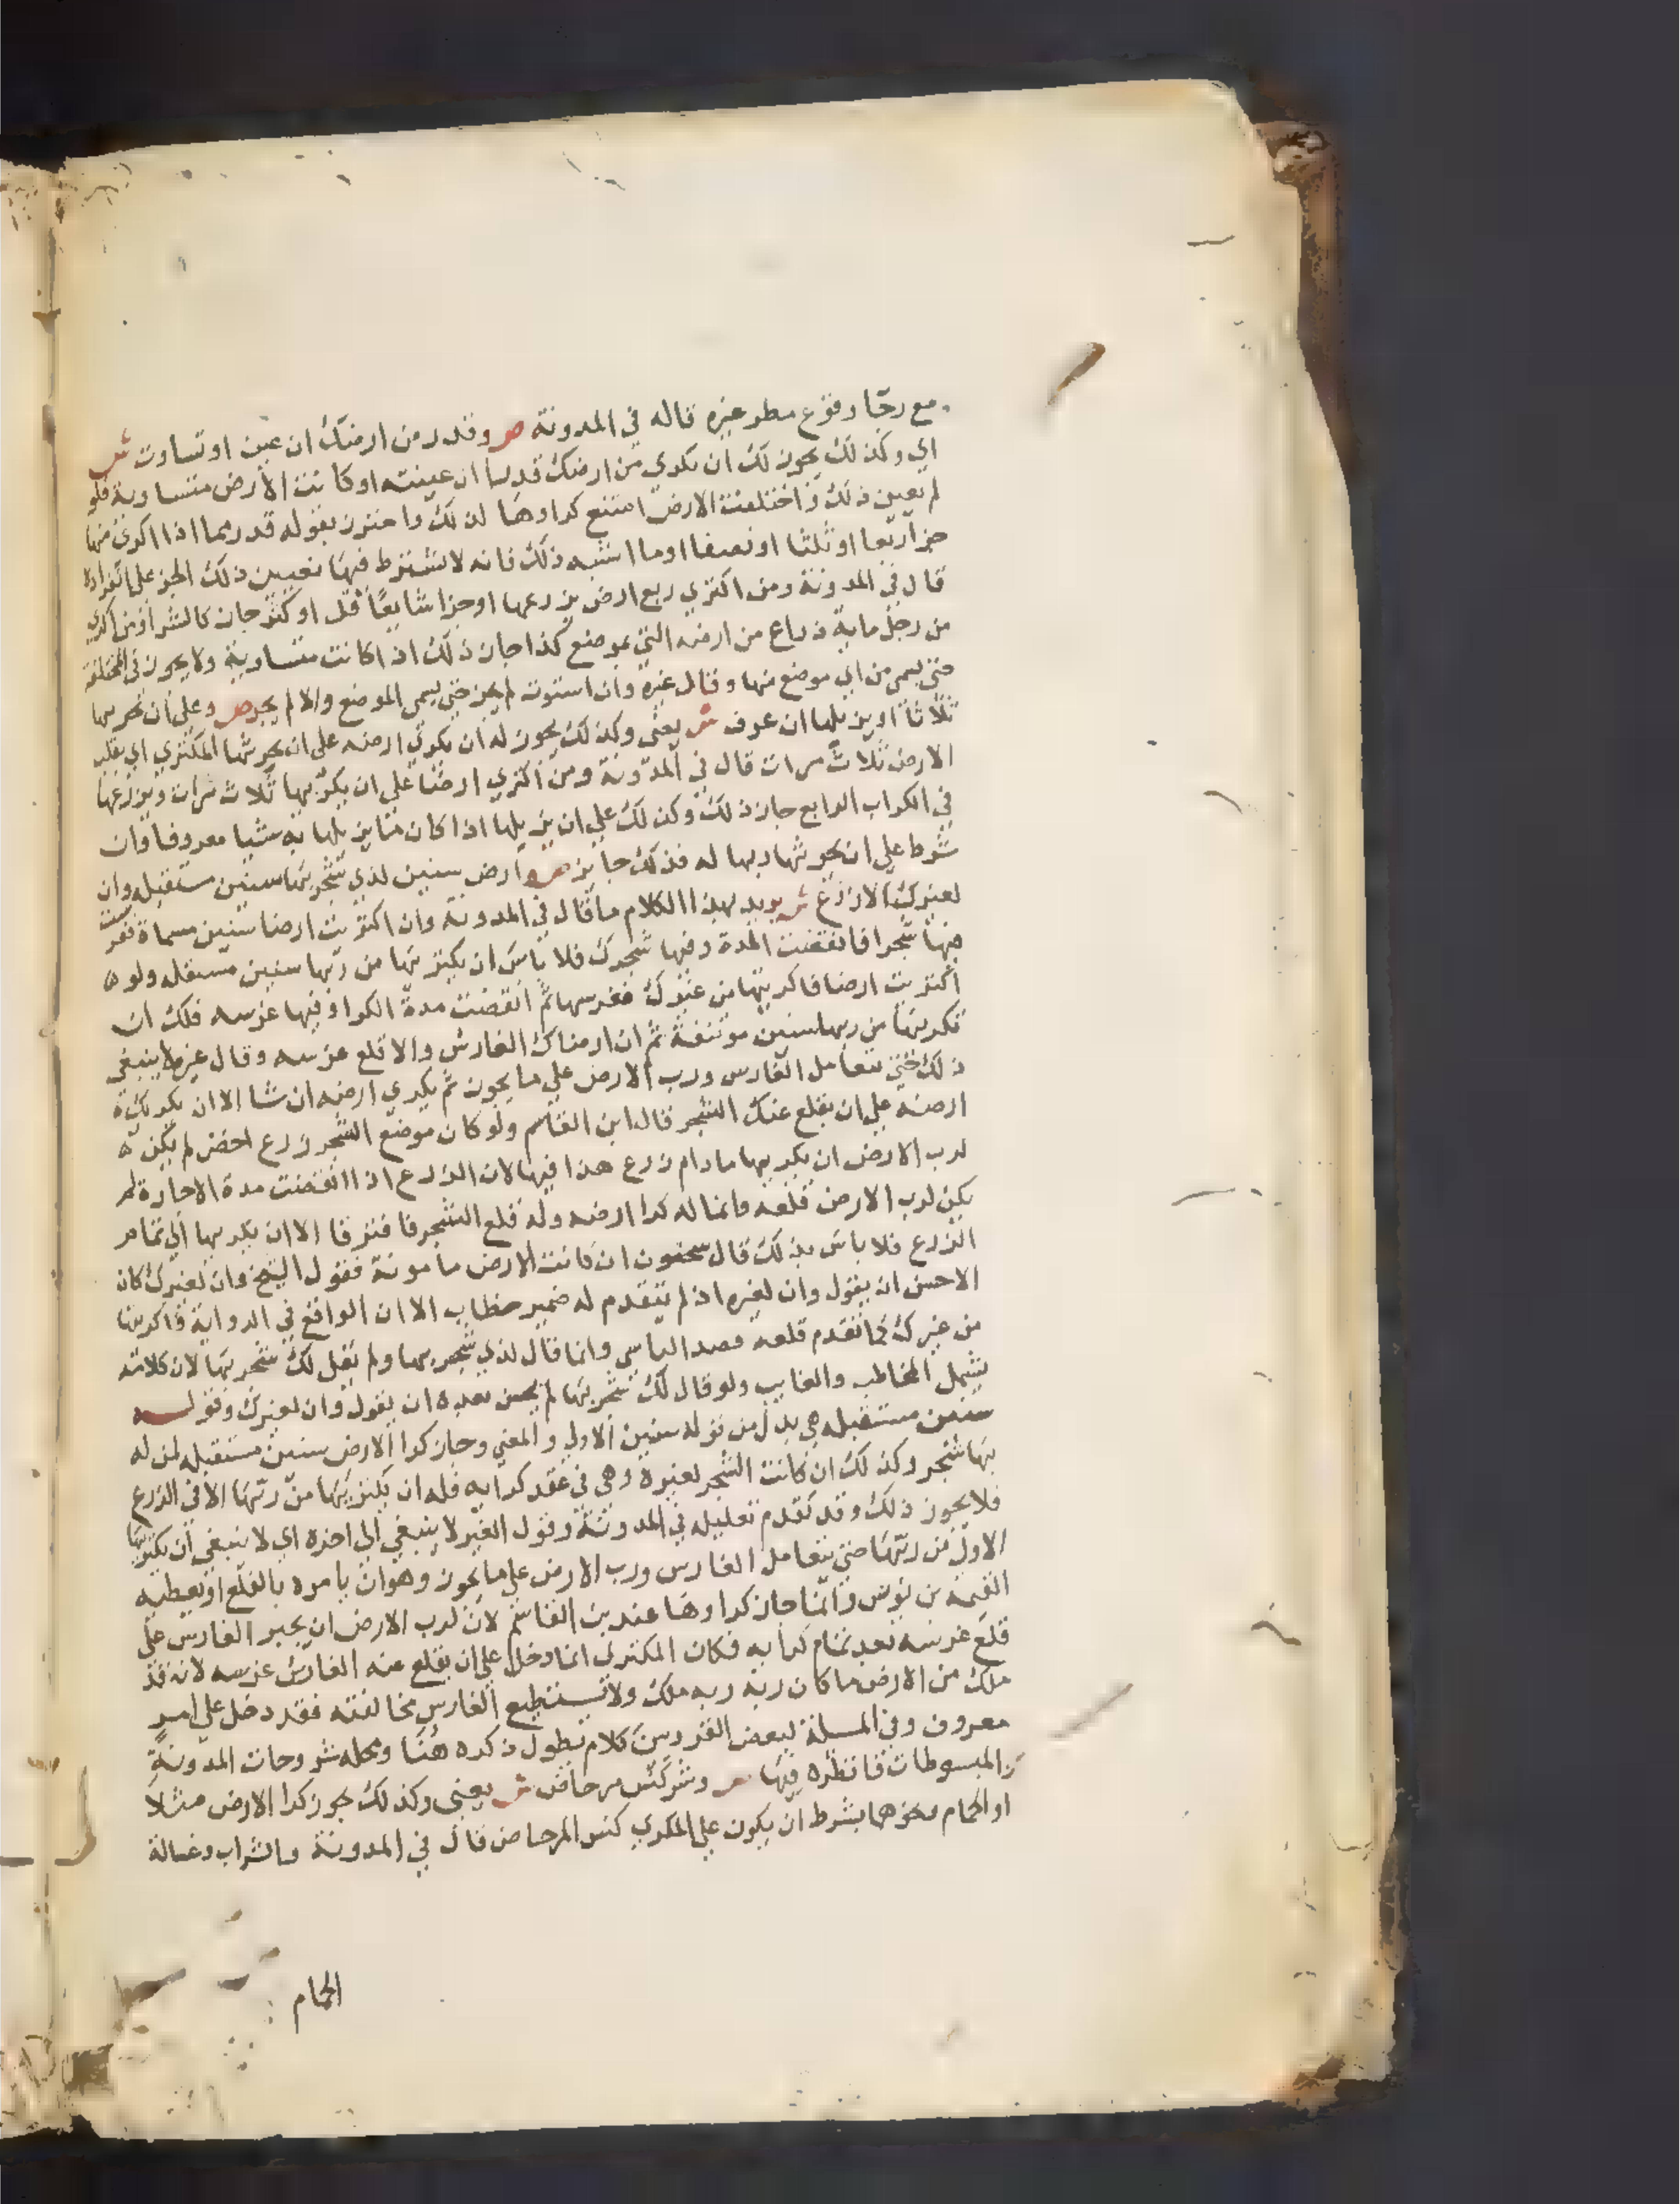 مع رجا وقوع مطر غيره قاله في المدونة ص وقدر من ارضك ان عين او تساوت ش
اي وكذلك يجوز لك ان تكري من ارضك قدرا ان عينته او كانت الارض متساوية فلو
لم يعين ذلك واختلفت الارض امتنع كراوها لذلك واحترز بقوله قدر مما اذا اكرى منها
جزا ربعا او ثلثا او نصفا او ما اشبه ذلك فانه لا يشترط فيها تعيين ذلك الجز على انفراده
قال في المدونة ومن اكتري ربع ارض يزرعها او جزا شايعا قل او كثر جاز كالشرا ومن اكتري
من رجل ماية ذراع من ارضه التي بموضع كذا جاز ذلك اذا كانت متساوية ولا يجوز في المختلفة
حتى يسمي من اي موضع منها وقال غيره وان استوت لم يجز حتى يسمي الموضع والا لم يجز ص وعلي ان يحرثها
ثلاثا او يزبلها ان عرف ش يعني وكذلك يجوز له ان يكري ارضه على ان يحرثها المكتري اي يقلب
الارض ثلاث مرات قال في المدونة ومن اكتري ارضا علي ان يكربها ثلاث مرات ويزرعها
في الكراب الرابع جاز ذلك وكذلك علي ان يزبلها اذا كان ما يزبلها به شيا معروفا وان
شرط علي ان يحرثها ربها له فذلك جايز ص وارض سنين لذي شجر بها سنين مستقبله وان
لغيرك لا زرع ش يريد بهذا الكلام ما قال في المدونة وان اكتريت ارضا سنين مسماة فغرست
فيها شجرا فانقضت المدة وفيها شجرك فلا باس ان تكتريها من ربها سنين مستقبله ولو ه
اكتريت ارضا فاكريتها من غيرك فغرسها ثم انقضت مدة الكرا وفيها غرسه فلك ان
تكريها من ربها سنين موتنفة ثم ان ارضاك الغارس والا قلع غرسه وقال غيره لا ينبغي
ذلك حتى يتعامل الغارس ورب الارض علي ما يجوز ثم يكري ارضه ان شا الا ان يكريك ه
ارضه علي ان يقلع عنك الشجر قال ابن القاسم ولو كان موضع الشجر زرع اخضر لم يكن ه
لرب الارض ان يكريها مادام زرع هذا فيها لان الزرع اذا انقضت مدة الاجارة لم
يكن لرب الارض قلعه وانما له كرا ارضه وله قلع الشجر فافترقا الا ان يكريها الي تمام
الزرع فلا باس بذلك قال سحنون ان كانت الارض مامونة فقول الشيخ وان لغيرك كان
الاحسن ان يقول وان لغيره اذ لم يتقدم له ضمير خطاب الا ان الواقع في الرواية فاكريتها
من غيرك كما تقدم قلعه قصد الباسي وانما قال لذي شجر بها ولم يقل لك شجر بها لان كلامه
يشمل المخاطب والغايب ولو قال لك شجر بها لم يحسن بعده ان يقول وان لغيرك وقوله
سنين مستقبله هي بدل من قوله سنين الاولي والمعني وجاز كرا الارض سنين مستقبله لمن له
بها شجر وكذلك ان كانت الشجر لغيره وهي في عقد كرايه فله ان يكتريها من ربها الا في الزرع
فلا يجوز ذلك وقد تقدم تعليله في المدونة وقول الغير لا ينبغي الي اخره اي لا ينبغي ان يكتريها
الاول من ربها حتى يتعامل الغارس ورب الارض علي ما يجوز وهو ان يامره بالقلع او يعطيه
القيمة بن يونس وانما جاز كراوها عند بن القاسم لان لرب الارض ان يجبر الغارس علي
قلع غرسه بعد تمام كرايه فكان المكتري انما دخل علي ان يقلع عنه الغارس غرسه لانه قد
ملك من الارض ما كان ربه ربه ملك ولا يستطيع الغارس مخالفته فقد دخل علي امر
معروف وفي المسلة لبعض القرويين كلام يطول ذكره هنا ومحله شروحات المدونة
والمبسوطات فانظره فيها ص وشرط كنس مرحاض ش يعني وكذلك يجوز كرا الارض مثلا
او الحمام ونحوهما بشرط ان يكون علي المكري كنس المرحاض قال في المدونة والتراب وغسالة
الحمام